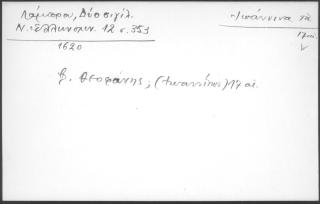 Λάμπρου, Δύο σιγίλ.
Ν. Ἑλληνομν. 12 σ. 353
1620
Ἰωάννινα τὰ
Μαϊ.
β. Θεοφάνης; (Ἰωαννίνων) Μαϊ.